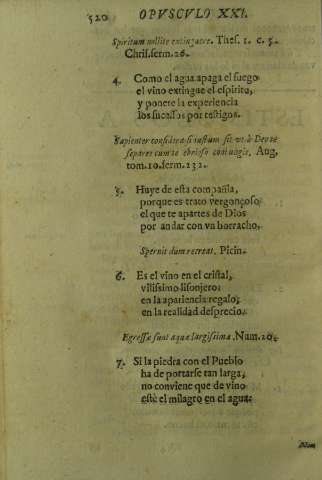 520 OPVSCVLO XXI.
Spiritum nollite extinguere. Thes. 1. c. 5.
Chrisserm. 26.
4. Como el agua apaga el fuego
el vino extingue el espiritu,
y ponete la experiencia
los sucessos por testigos.
Sapienter considera si iustum sit vt à Deo te
separes cum te ebrioso coniungis, Aug,
tom. 10. serm. 232.
5. Huye de esta compañia,
porque es trato vergonçoso,
el que te apartes de Dios
por andar con vn borracho.
Spernit dum recreat. Picin.
6. Es el vino en el cristal,
vilissimo lisonjero:
en la apariencia regalo,
en la realidad desprecio.
Egressæ sunt aquæ largissimæ. Num. 20.
7. Si la piedra con el Pueblo
ha de portarse tan larga,
no conviene que de vino
estè el milagro en el agua: